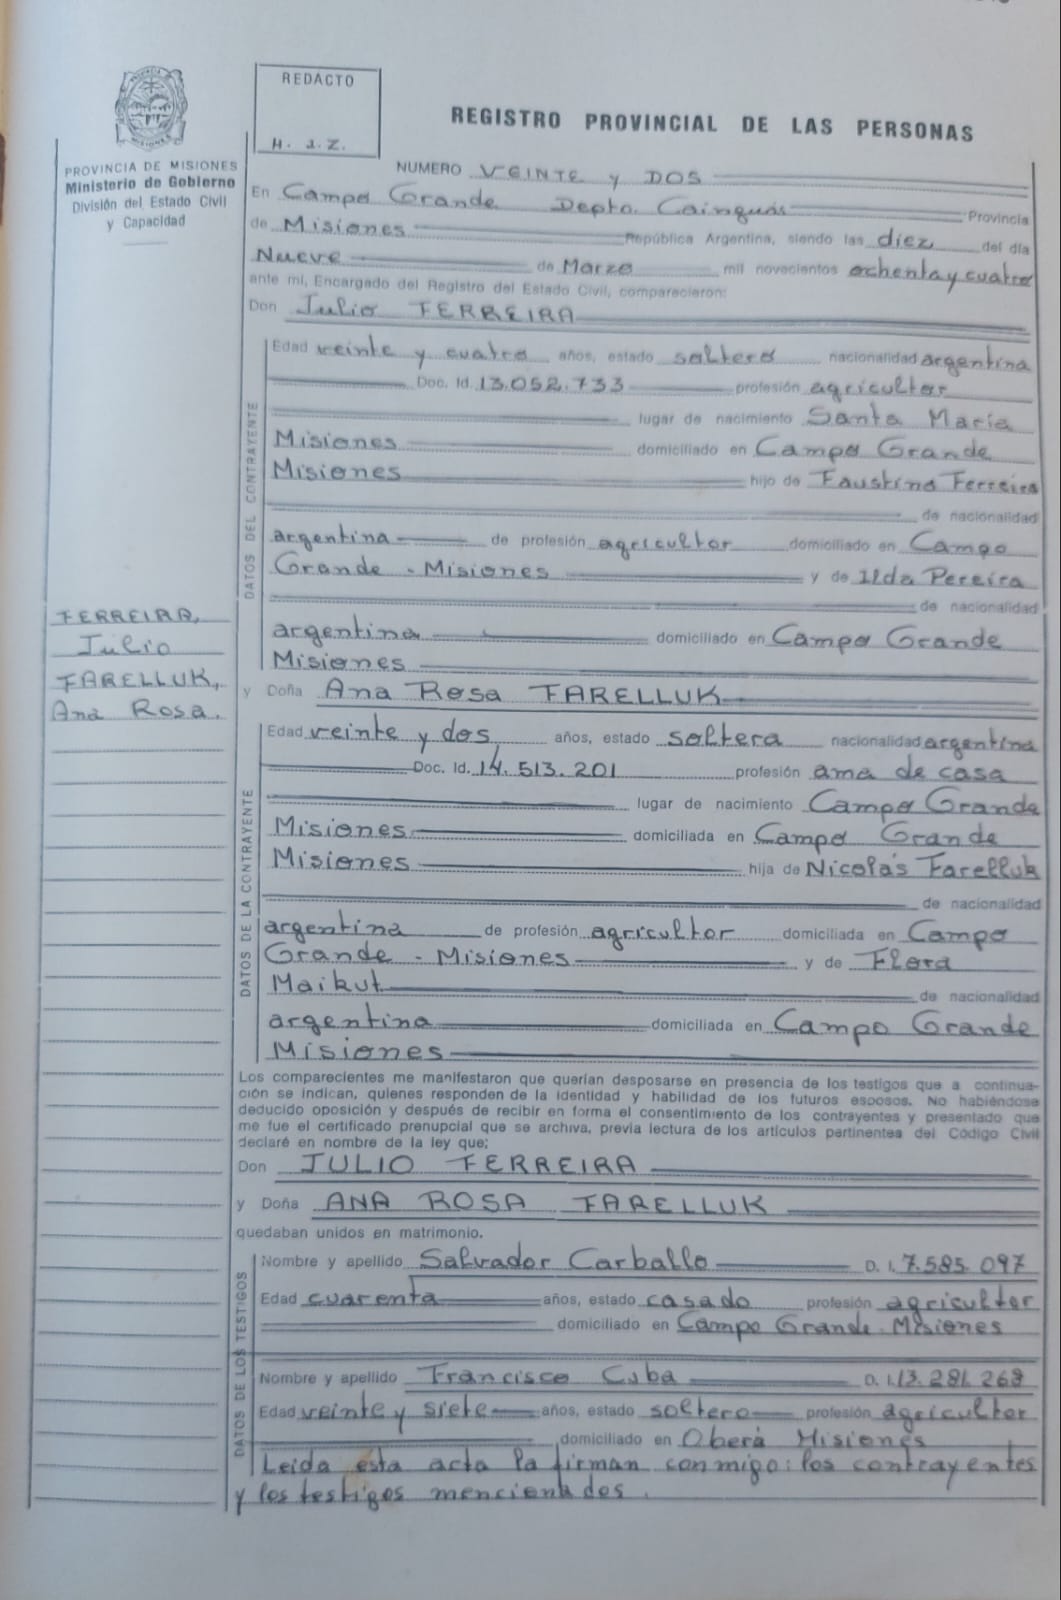 REDACTO
H. J. Z.
REGISTRO PROVINCIAL DE LAS PERSONAS
PROVINCIA DE MISIONES
Ministerio de Gobierno
División del Estado Civil
y Capacidad
NUMERO VEINTE y DOS
En Campo Grande Depto. Cainguás Provincia
de Misiones República Argentina, siendo las diez del día
Nueve de Marzo mil novecientos ochenta y cuatro
ante mi, Encargado del Registro del Estado Civil, comparecieron:
Don Julio FERREIRA
DATOS DEL CONTRAYENTE
Edad veinte y cuatro años, estado soltero nacionalidad argentina
Doc. Id. 13.052.733 profesión agricultor
lugar de nacimiento Santa María
Misiones domiciliado en Campo Grande
Misiones hijo de Faustino Ferreira
de nacionalidad
argentina de profesión agricultor domiciliado en Campo
Grande - Misiones y de Ilda Pereira
de nacionalidad
argentina domiciliado en Campo Grande
Misiones
FERREIRA,
Julio
FARELLUK,
Ana Rosa.
y Doña Ana Rosa FARELLUK
DATOS DE LA CONTRAYENTE
Edad veinte y dos años, estado soltera nacionalidad argentina
Doc. Id. 14.513.201 profesión ama de casa
lugar de nacimiento Campo Grande
Misiones domiciliada en Campo Grande
Misiones hija de Nicolás Farelluk
de nacionalidad
argentina de profesión agricultor domiciliada en Campo
Grande - Misiones y de Flora
Maikut de nacionalidad
argentina domiciliada en Campo Grande
Misiones
Los comparecientes me manifestaron que querían desposarse en presencia de los testigos que a continua-
ción se indican, quienes responden de la identidad y habilidad de los futuros esposos. No habiéndose
deducido oposición y después de recibir en forma el consentimiento de los contrayentes y presentado que
me fue el certificado prenupcial que se archiva, previa lectura de los artículos pertinentes del Código Civil
declaré en nombre de la ley que;
Don JULIO FERREIRA
y Doña ANA ROSA FARELLUK
quedaban unidos en matrimonio.
DATOS DE LOS TESTIGOS
Nombre y apellido Salvador Carballo D. I. 7.585.097
Edad cuarenta años, estado casado profesión agricultor
domiciliado en Campo Grande Misiones
Nombre y apellido Francisco Cuba D. I. 13.281.268
Edad veinte y siete años, estado soltero profesión agricultor
domiciliado en Oberá Misiones
Leida esta acta la firman conmigo: los contrayentes
y los testigos mencionados.